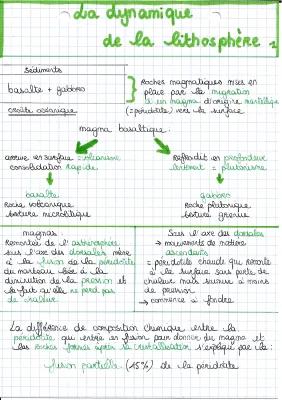 La dynamique
de la lithosphère 1
Sédiments
basalte + gabbro
croûte océanique
Roches magmatiques mises en
place par la migration
d'un magma d'origine mantélique
(= péridotite) vers la surface
magma basaltique
arrive en surface = volcanisme
consolidation rapide.
Refroidit en profondeur
lentement = plutonisme
basalte
Roche volcanique
texture microlitique
gabbro
Roche plutonique
texture grenue
magmas
Remontée de l'asthénosphère
sous l'axe des dorsales mène
à la fusion de la péridotite
du manteau liée à la
diminution de la pression et
le fait qu'elle ne perd pas
de chaleur
Sous l'axe des dorsales
→ mouvements de matière
ascendants
= péridotite chaude qui remonte
à la surface sans perte de
chaleur mais soumise à moins
de pression
→ commence à fondre
La différence de composition chimique entre la
péridotite qui entre en fusion pour donner du magma et
les roches formées après la cristallisation s'explique par la :
fusion partielle (15%) de la péridotite